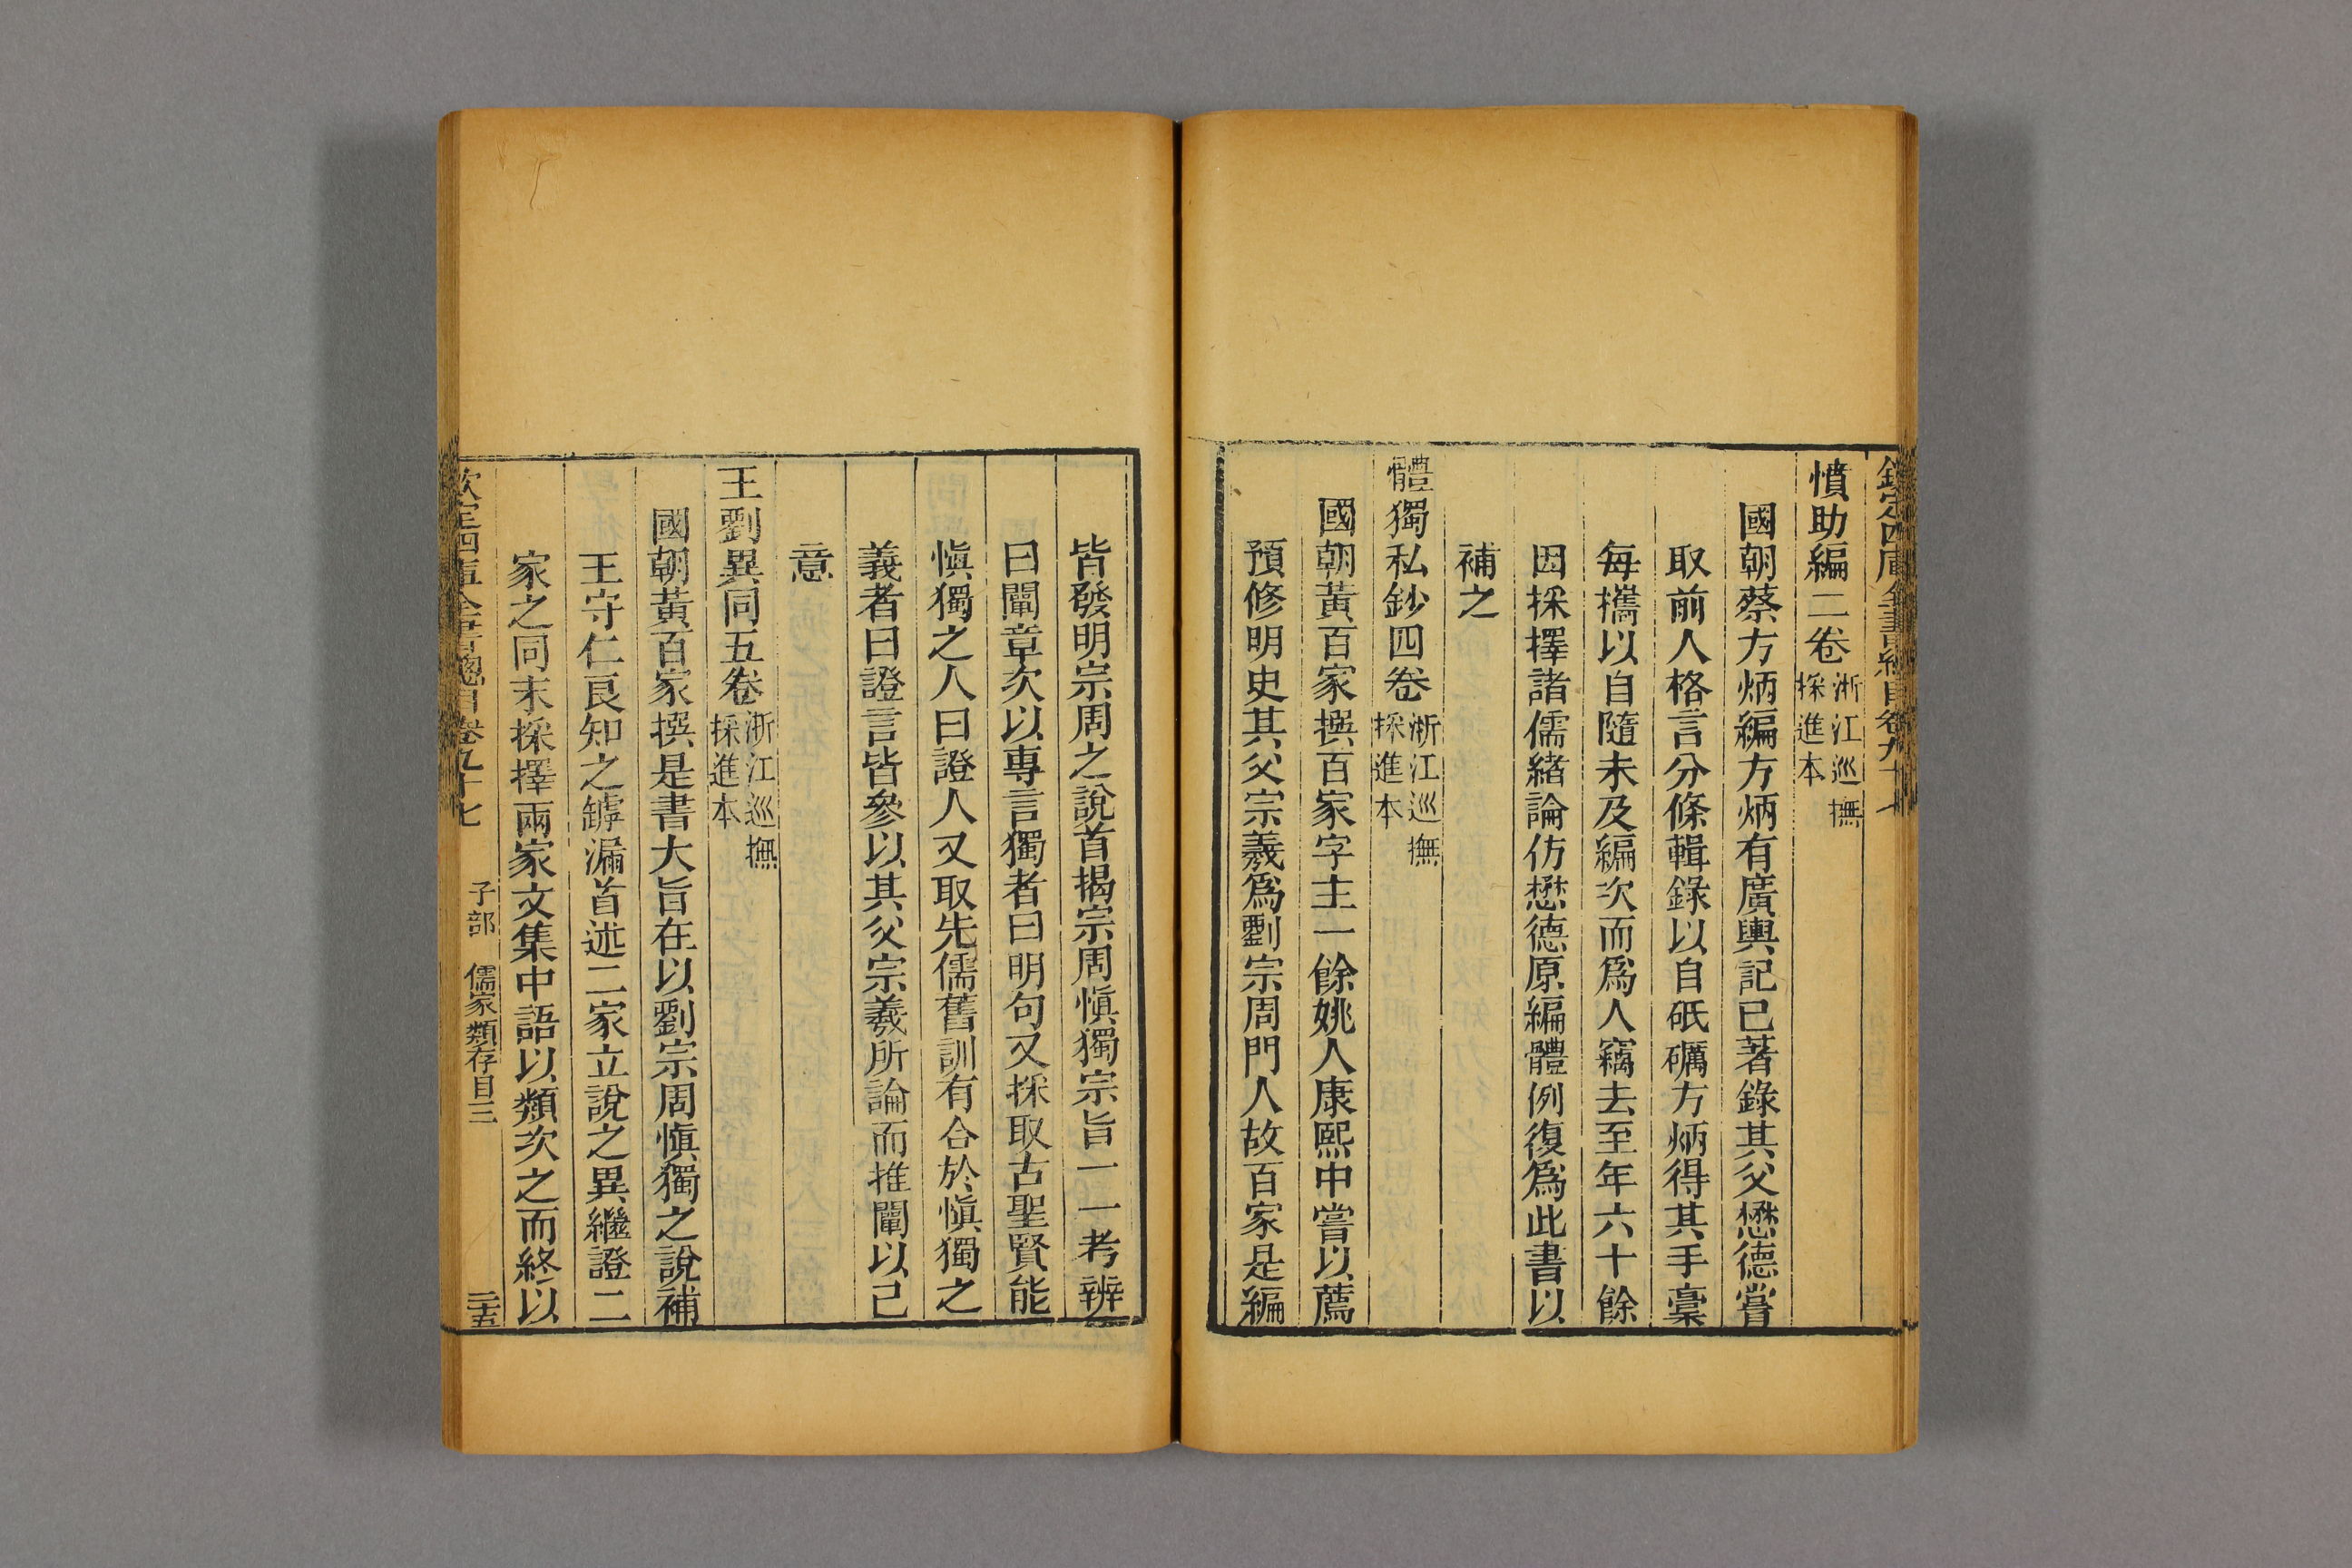 欽定四庫全書總目卷九十七
憤助編二卷浙江巡撫採進本
國朝蔡方炳編方炳有廣輿記已著錄其父懋德嘗
取前人格言分條輯錄以自砥礪方炳得其手稾
每攜以自隨未及編次而爲人竊去至年六十餘
因採擇諸儒緒論仿懋德原編體例復爲此書以
補之
體獨私鈔四卷浙江巡撫採進本
國朝黃百家撰百家字主一餘姚人康熙中嘗以薦
預修明史其父宗羲爲劉宗周門人故百家是編
皆發明宗周之說首揭宗周愼獨宗旨一一考辨
曰闡章次以專言獨者曰明句又採取古聖賢能
愼獨之人曰證人又取先儒舊訓有合於愼獨之
義者曰證言皆參以其父宗羲所論而推闡以己
意
王劉異同五卷浙江巡撫採進本
國朝黃百家撰是書大旨在以劉宗周愼獨之說補
王守仁良知之罅漏首述二家立說之異繼證二
家之同末採擇兩家文集中語以類次之而終以
欽定四庫全書總目卷九十七 子部 儒家類存目三 二十五